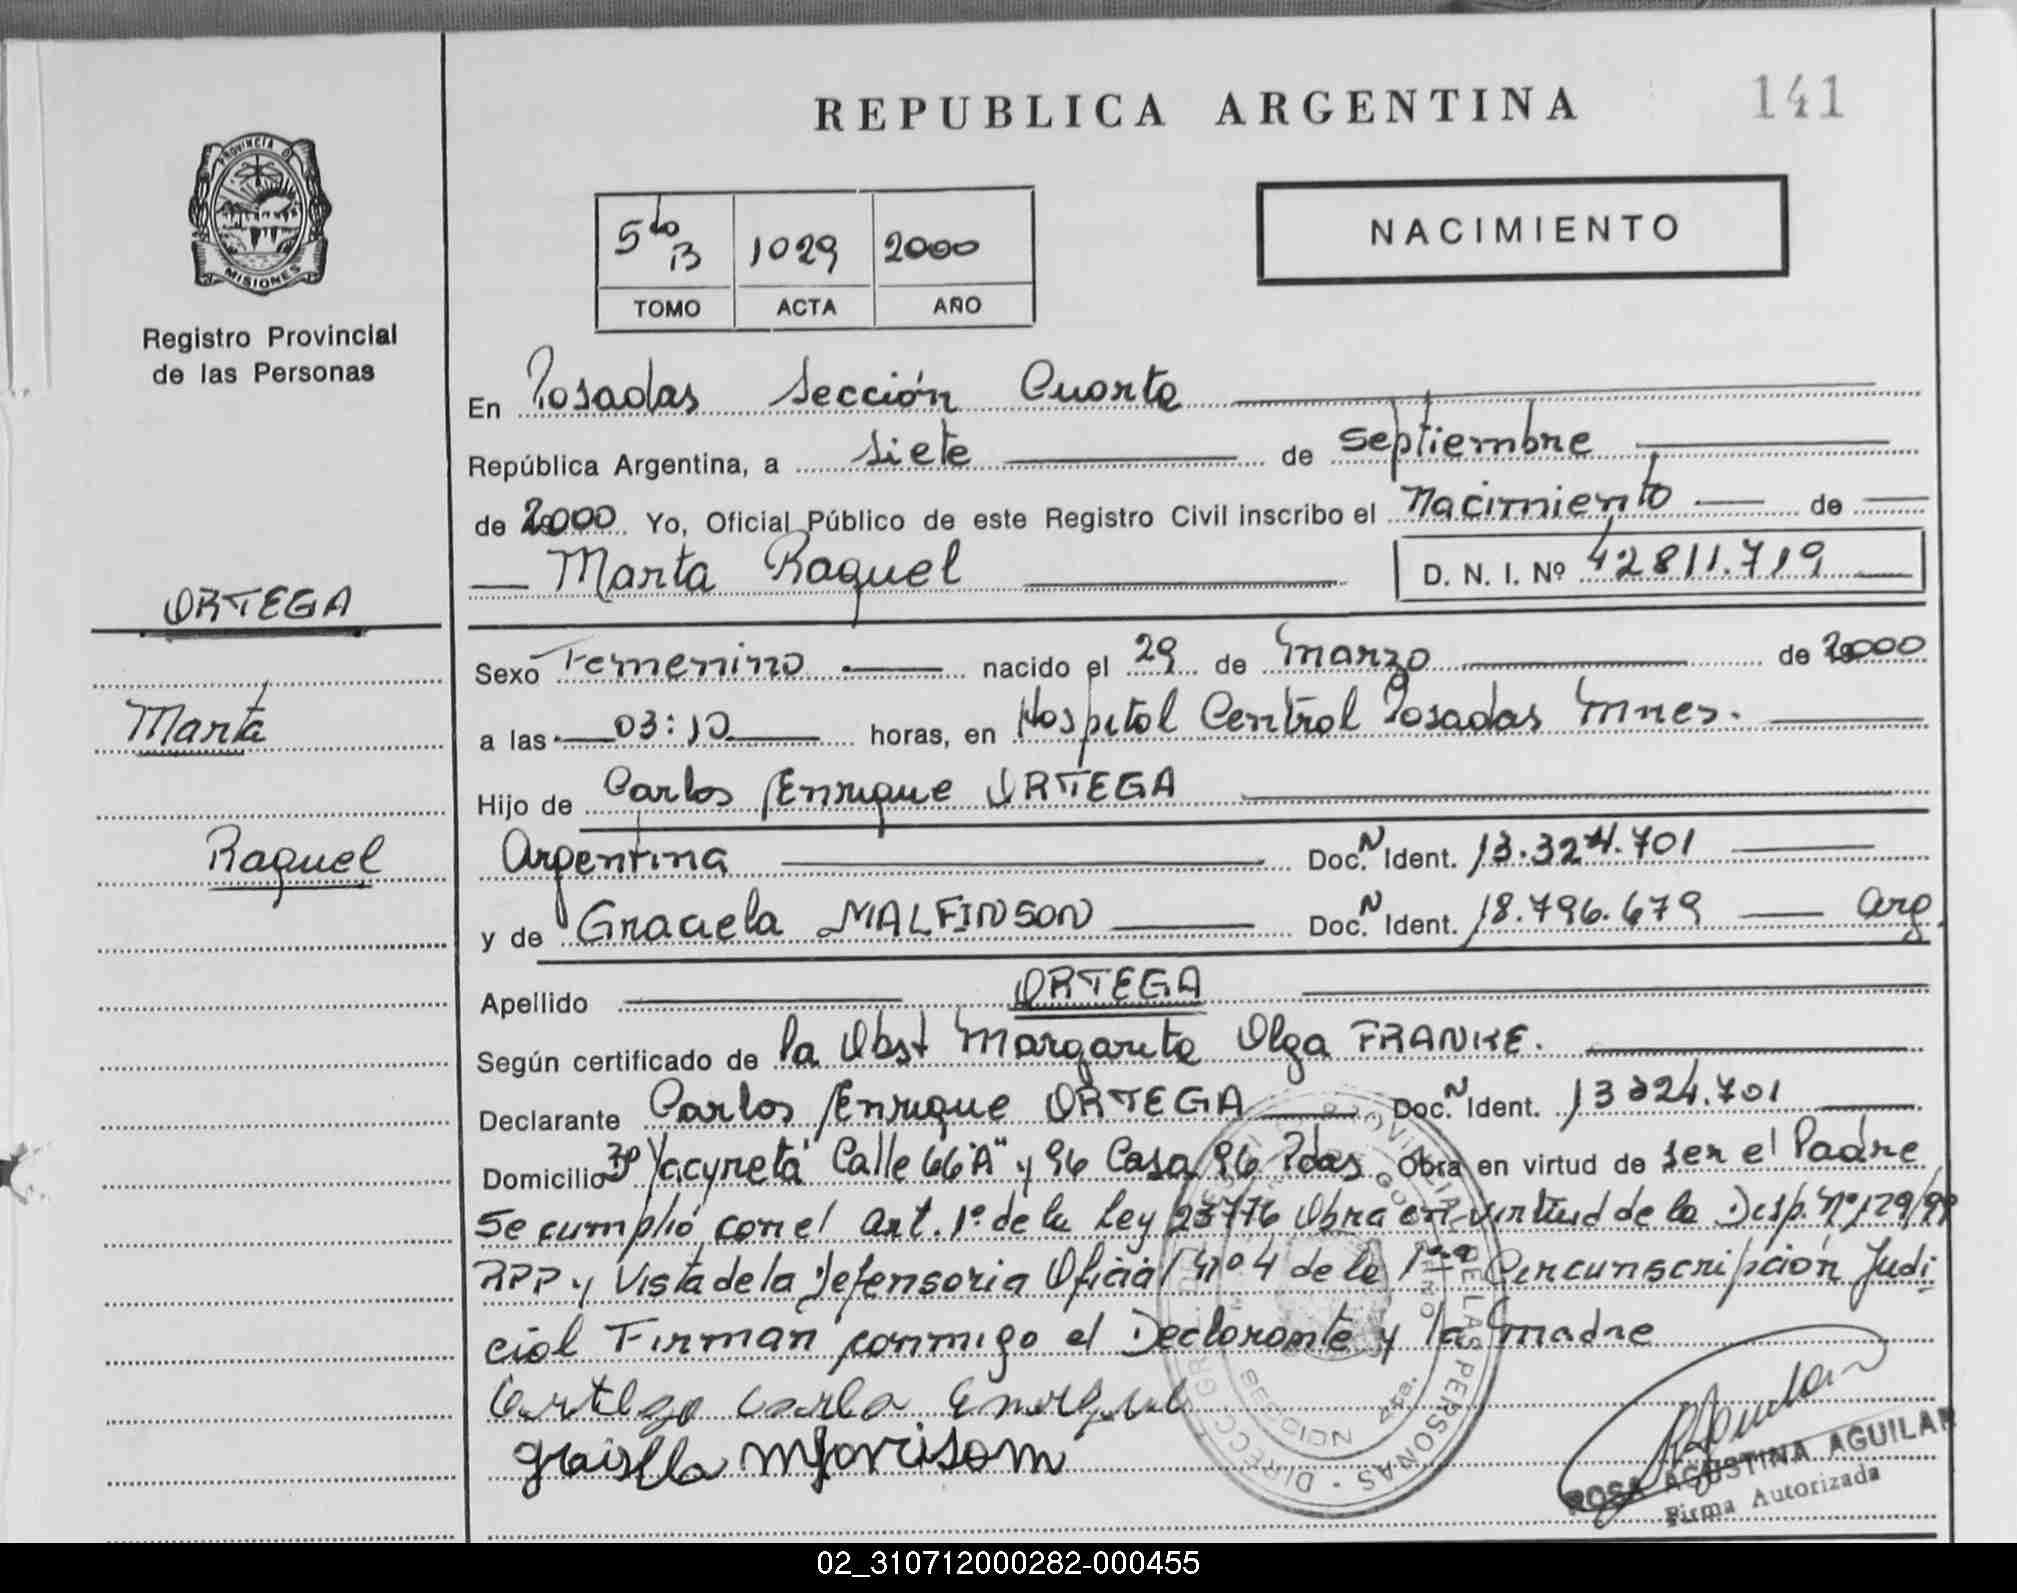 REPUBLICA ARGENTINA
141
PROVINCIA DE
MISIONES
Registro Provincial
de las Personas
5to B 1029 2000
TOMO ACTA AÑO
NACIMIENTO
En Posadas Sección Cuarta
República Argentina, a siete de septiembre
de 2000 Yo, Oficial Público de este Registro Civil inscribo el Nacimiento de
Marta Raquel D. N. I. Nº 42811.719
ORTEGA
Marta
Raquel
Sexo Femenino nacido el 29 de Marzo de 2000
a las 03:10 horas, en Hospital Central Posadas Mnes.
Hijo de Carlos Enrique ORTEGA
Argentina Doc. N Ident. 13.324.701
y de Graciela MALFINSON Doc. N Ident. 18.796.679 Arg.
Apellido ORTEGA
Según certificado de la Obst Margarita Olga FRANKE.
Declarante Carlos Enrique ORTEGA Doc. N Ident. 13324.701
Domicilio Yacyretá Calle 66 "A" y 96 Casa 96 Pdas. Obra en virtud de ser el Padre
Se cumplió con el art. 1º de la Ley 23776 Obra en virtud de la Disp. Nº 129/99
RPP y Vista de la Defensoria Oficial Nº 4 de la 1ra Circunscripción Judi-
cial Firman conmigo el Declarante y la Madre
Carlos Enrique
ROSA AGUSTINA AGUILAR
Firma Autorizada
02_310712000282-000455